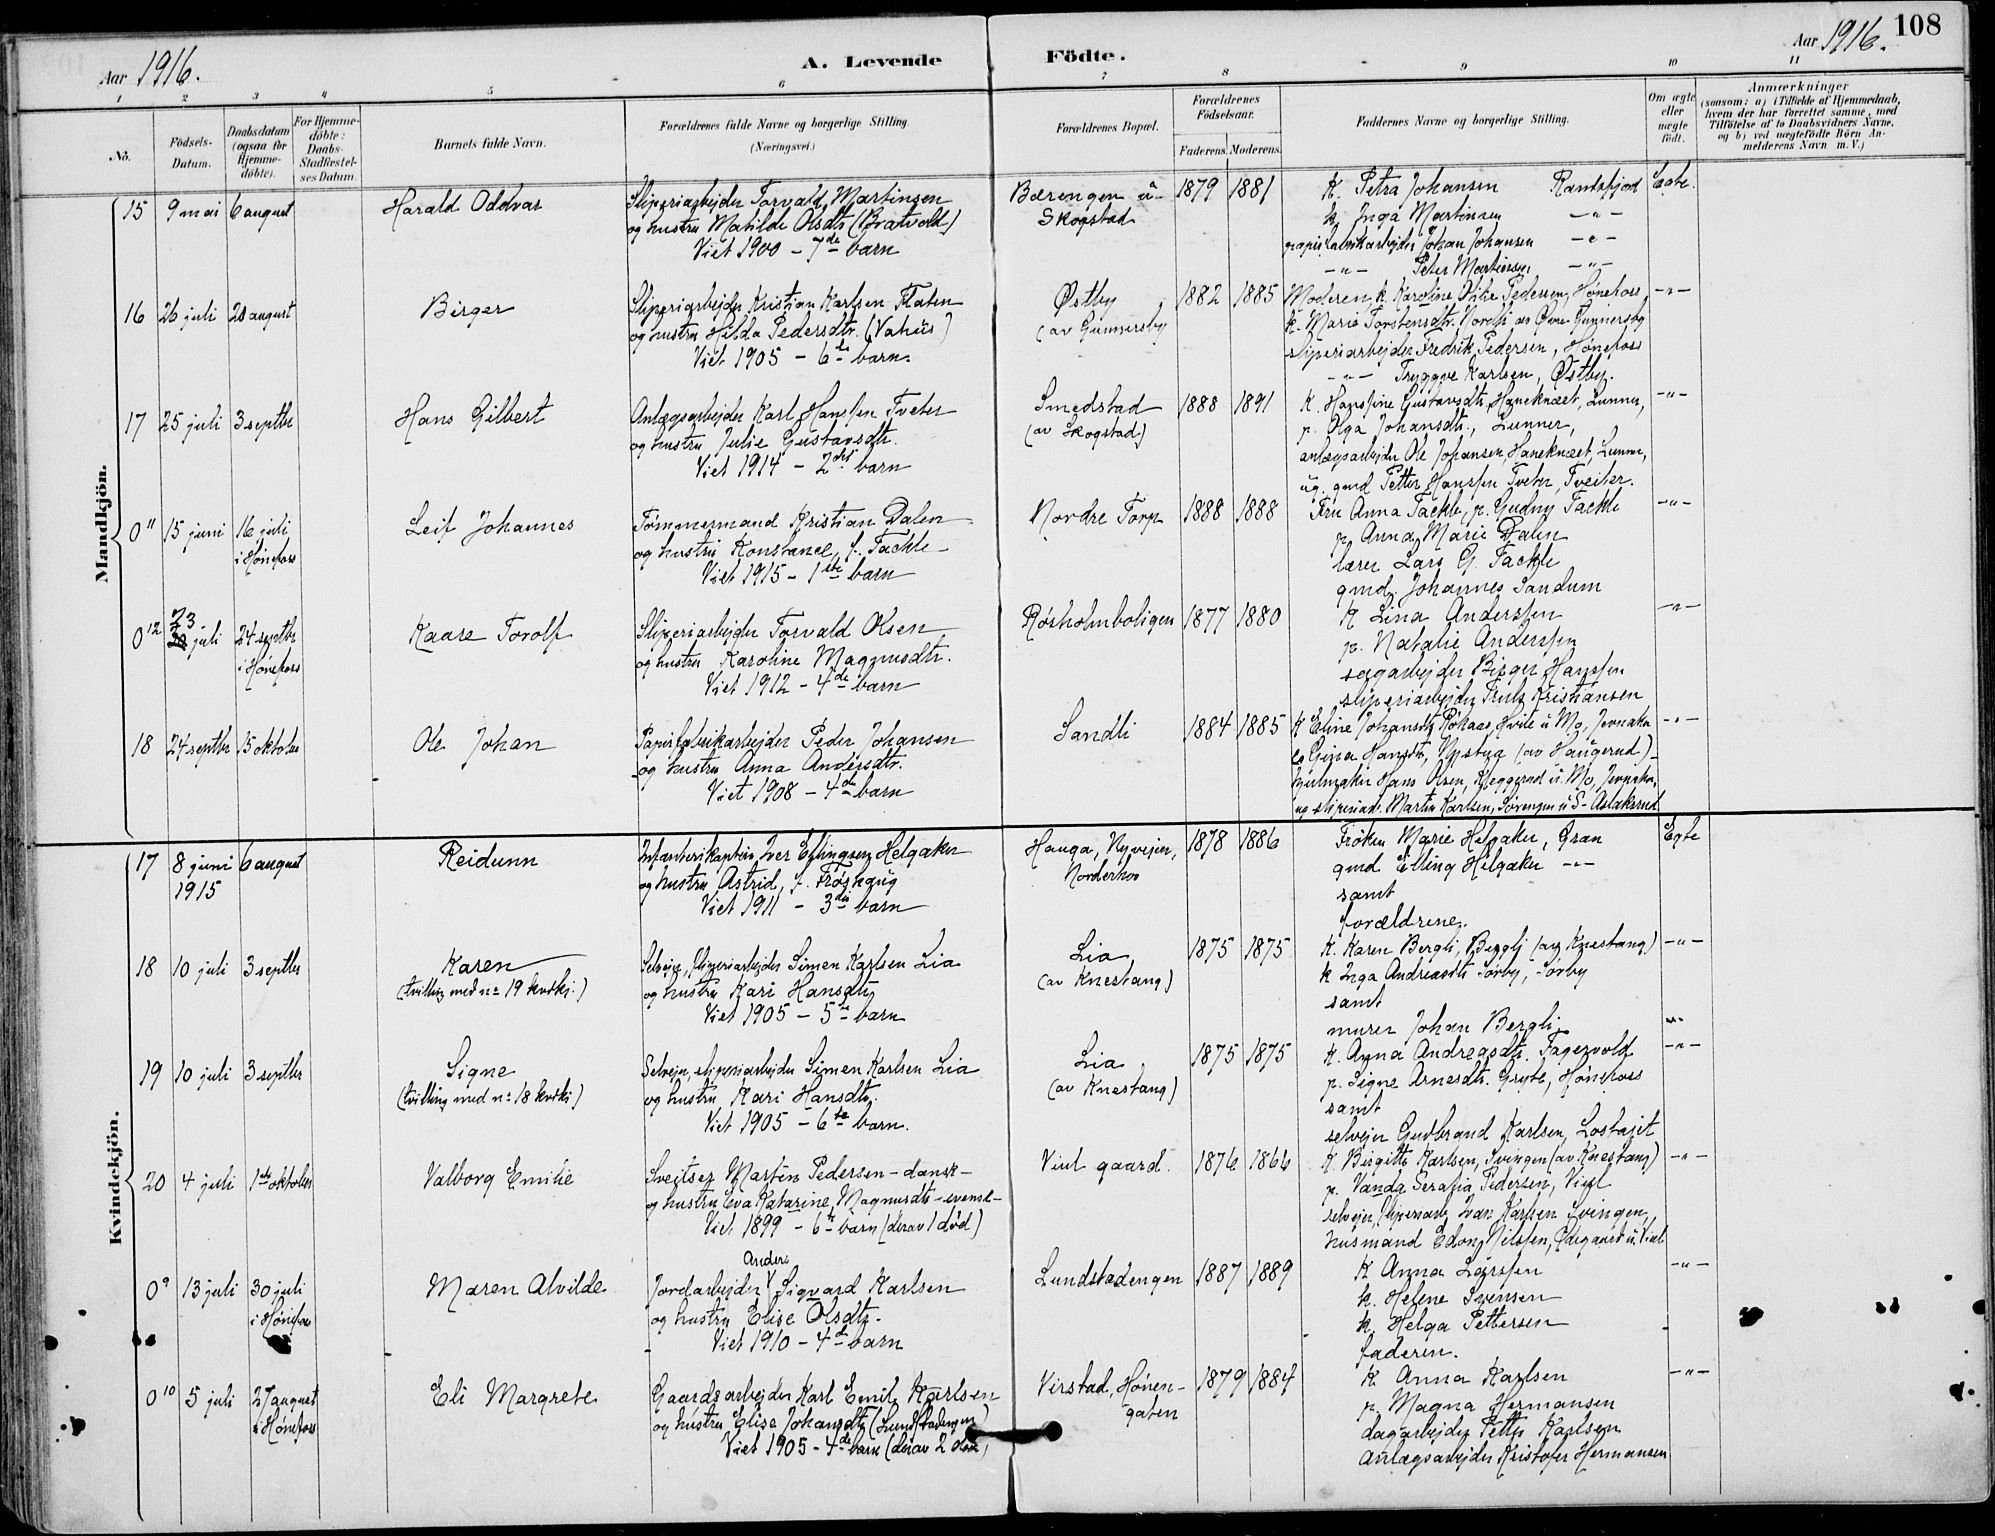 108
Aar 1916.
A. Levende Födte.
Aar 1916.
1 2 3 4 5 6 7 8 9 10 11
No.
Födsels-Datum.
Daabsdatum (ogsaa for Hjemme-döbte).
For Hjemme-döbte: Daabs-Stadfæstel-ses Datum.
Barnets fulde Navn.
Forældrenes fulde Navne og borgerlige Stilling
(Næringsvei.)
Forældrenes Bopæl.
Forældrenes Födselsaar.
Faderens. Moderens.
Faddernes Navne og borgerlige Stilling.
Om ægte eller uægte födt.
Anmærkninger
(saasom: a) i Tilfælde af Hjemmedaab, hvem der har forrettet samme, med Tilföielse af to Daabsvidners Navne, og b) ved uægtefödte Börn An-melderens Navn m. V.)
Mandkjön.
15 9 mai 6 august Harald Oddvar
Sliperiarbejder Torvald Martinsen
og hustru Matilde Olsdtr (Bratvold)
Viet 1900 - 7de barn
Bærengen u. Skogstad
1879 1881
K. Petra Johansen Randsfjord
k. Inga Martinsen -"-
papirfabrikarbejder Johan Johansen -"-
-"- Peter Martinsen -"-
Egte.
16 26 juli 20 august Birger
Sliperiarbejder Kristian Karlsen Flaten
og hustru Hilda Pedersdtr. (Vahus)
Viet 1905 - 6te barn.
Østby
(av Gunnersby
1882 1885
Moderen, k. Karoline Pedersen, Hønefoss
k. Marie Torstensdtr. Øvre Gunnersby
sliperiarbejder Fredrik Pedersen, Hønefoss
-"- Tryggve Karlsen, Østby.
-"-
17 25 juli 3 septbr Hans Gilbert
Anlægsarbejder Karl Hanssen Tveter
og hustru Julie Gustavsdtr.
Viet 1914 - 2det barn
Smedstad
(av Skogstad)
1888 1891
K. Hansine Gustavsdtr, Haneknæet, Lunner,
p. Olga Johansdtr., Lunner,
anlægsarbejder Ole Johansen, Haneknæet, Lunner,
ug. gmd Petter Hanssen Tveter, Tveiter.
-"-
0 11 15 juni 16 juli i Hønefoss Leif Johannes
Tømmermand Kristian Dalen
og hustru Konstance, f. Tackle
Viet 1915 - 1ste barn
Nordre Torp
1888 1888
Fru Anna Tackle, p. Gudny Tackle
p. Anna Marie Dalen
lærer Lars G. Tackle
gmd. Johannes Sandum
-"-
0 12 23 juli 24 septbr i Hønefoss Kaare Torolf
Sliperiarbejder Torvald Olsen
og hustru Karoline Magnusdtr.
Viet 1912 - 4de barn
Røsholmboligen
1877 1880
K Lina Anderssen
p. Natalie Anderssen
sagarbejder Birger Hanssen
sliperiarbejder Truls Kristiansen
-"-
18 24 septbr 15 oktober Ole Johan
Papirfabrikarbejder Peder Johansen
og hustru Anna Andersdtr.
Viet 1908 - 4de barn
Sandli
1884 1885
K Eline Johansdtr, Hvile u Mo, Jevnaker
Gina Hansdtr, Nystua (av Haugerud)
hjulmaker Hans Olsen, Kleggerud u. Mo, Jevnaker,
og sliperiarb. Martin Karlsen, u S- Aslaksrud
-"-
Kvindekjön.
17 8 juni 1915 6 august Reidunn
Infanterikaptein Iver Ellingsen Helgaker
og hustru Astrid, f. Frøshaug
Viet 1911 - 3die barn
Hauga, Nyvejen,
Norderhov
1878 1886
Frøken Marie Helgaker, Gran
gmd Elling Helgaker -"-
samt
forældrene.
Egte
18 10 juli 3 septbr Karen
(tvilling med no 19 kvdkj.)
Selveier, sliperiarbejder Simen Karlsen Lia
og hustru Kari Hansdtr
Viet 1905 - 5te barn
Lia
(av Knestang)
1875 1875
K. Karen Bergli, Bergli (av Knestang)
k Inga Andreasdtr Sørby, Sørby
samt
murer Johan Bergli
-"-
19 10 juli 3 septbr Signe
(tvilling med no 18 kvdkj)
Selveier, sliperiarbejder Simen Karlsen Lia
og hustru Kari Hansdtr.
Viet 1905 - 6te barn.
Lia
(av Knestang)
1875 1875
K. Anna Andreasdtr. Fagervold
p. Signe Arnesdtr. Grybe, Hønefoss
samt
selvejer Gudbrand Karlsen,
-"-
20 4 juli 1ste oktober Valborg Emilie
Sveitser Martin Pedersen - dansk -
og hustru Eva Katarine Magnusdtr - svensk -
Viet 1899 - 6te barn (derav 1 død)
Viul gaard.
1876 1866
K. Birgitte Karlsen, Svingen (av Knestang)
p. Vanda Serafia Pedersen, Viul
selvejer, sliperiarb, Ivar Karlsen Svingen,
husmand Edon Nilssen, Ødegaard u. Viul
-"-
0 9 13 juli 30 juli i Hønefoss Maren Alvilde
Anders
Jordarbejder V Sigvard Karlsen
og hustru Elise Olsdtr.
Viet 1910 - 4de barn
Lundstadengen
1887 1889
K Anna Larssen
k. Helene Svensen
k. Helga Pettersen
faderen.
-"-
0 10 5 juli 27 august i Hønefoss Eli Margrete
Gaardsarbejder Karl Emil Karlsen
og hustru Elise Johansdtr (Lundstadengen)
Viet 1905 - 4de barn (derav 2 døde)
Virstad, Hønen-
gaten
1879 1884
K Anna Karlsen
p. Magna Hermansen
dagarbejder Petter Karlsen
Anlægsarbejder Kristofer Hermansen
-"-